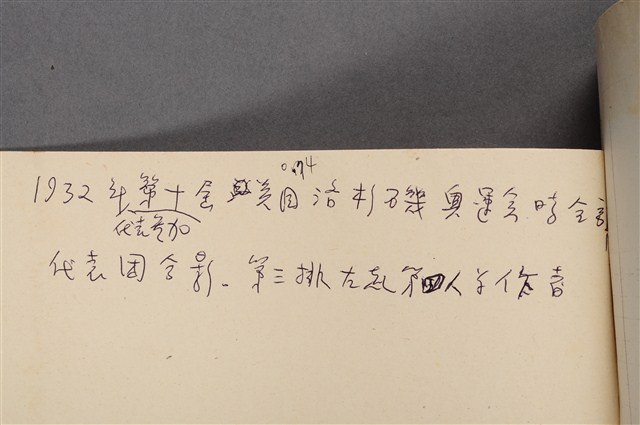 1932年第十屆美国洛杉磯奧運會時全
代表參加
代表團合影。第三排左起第四人為作者